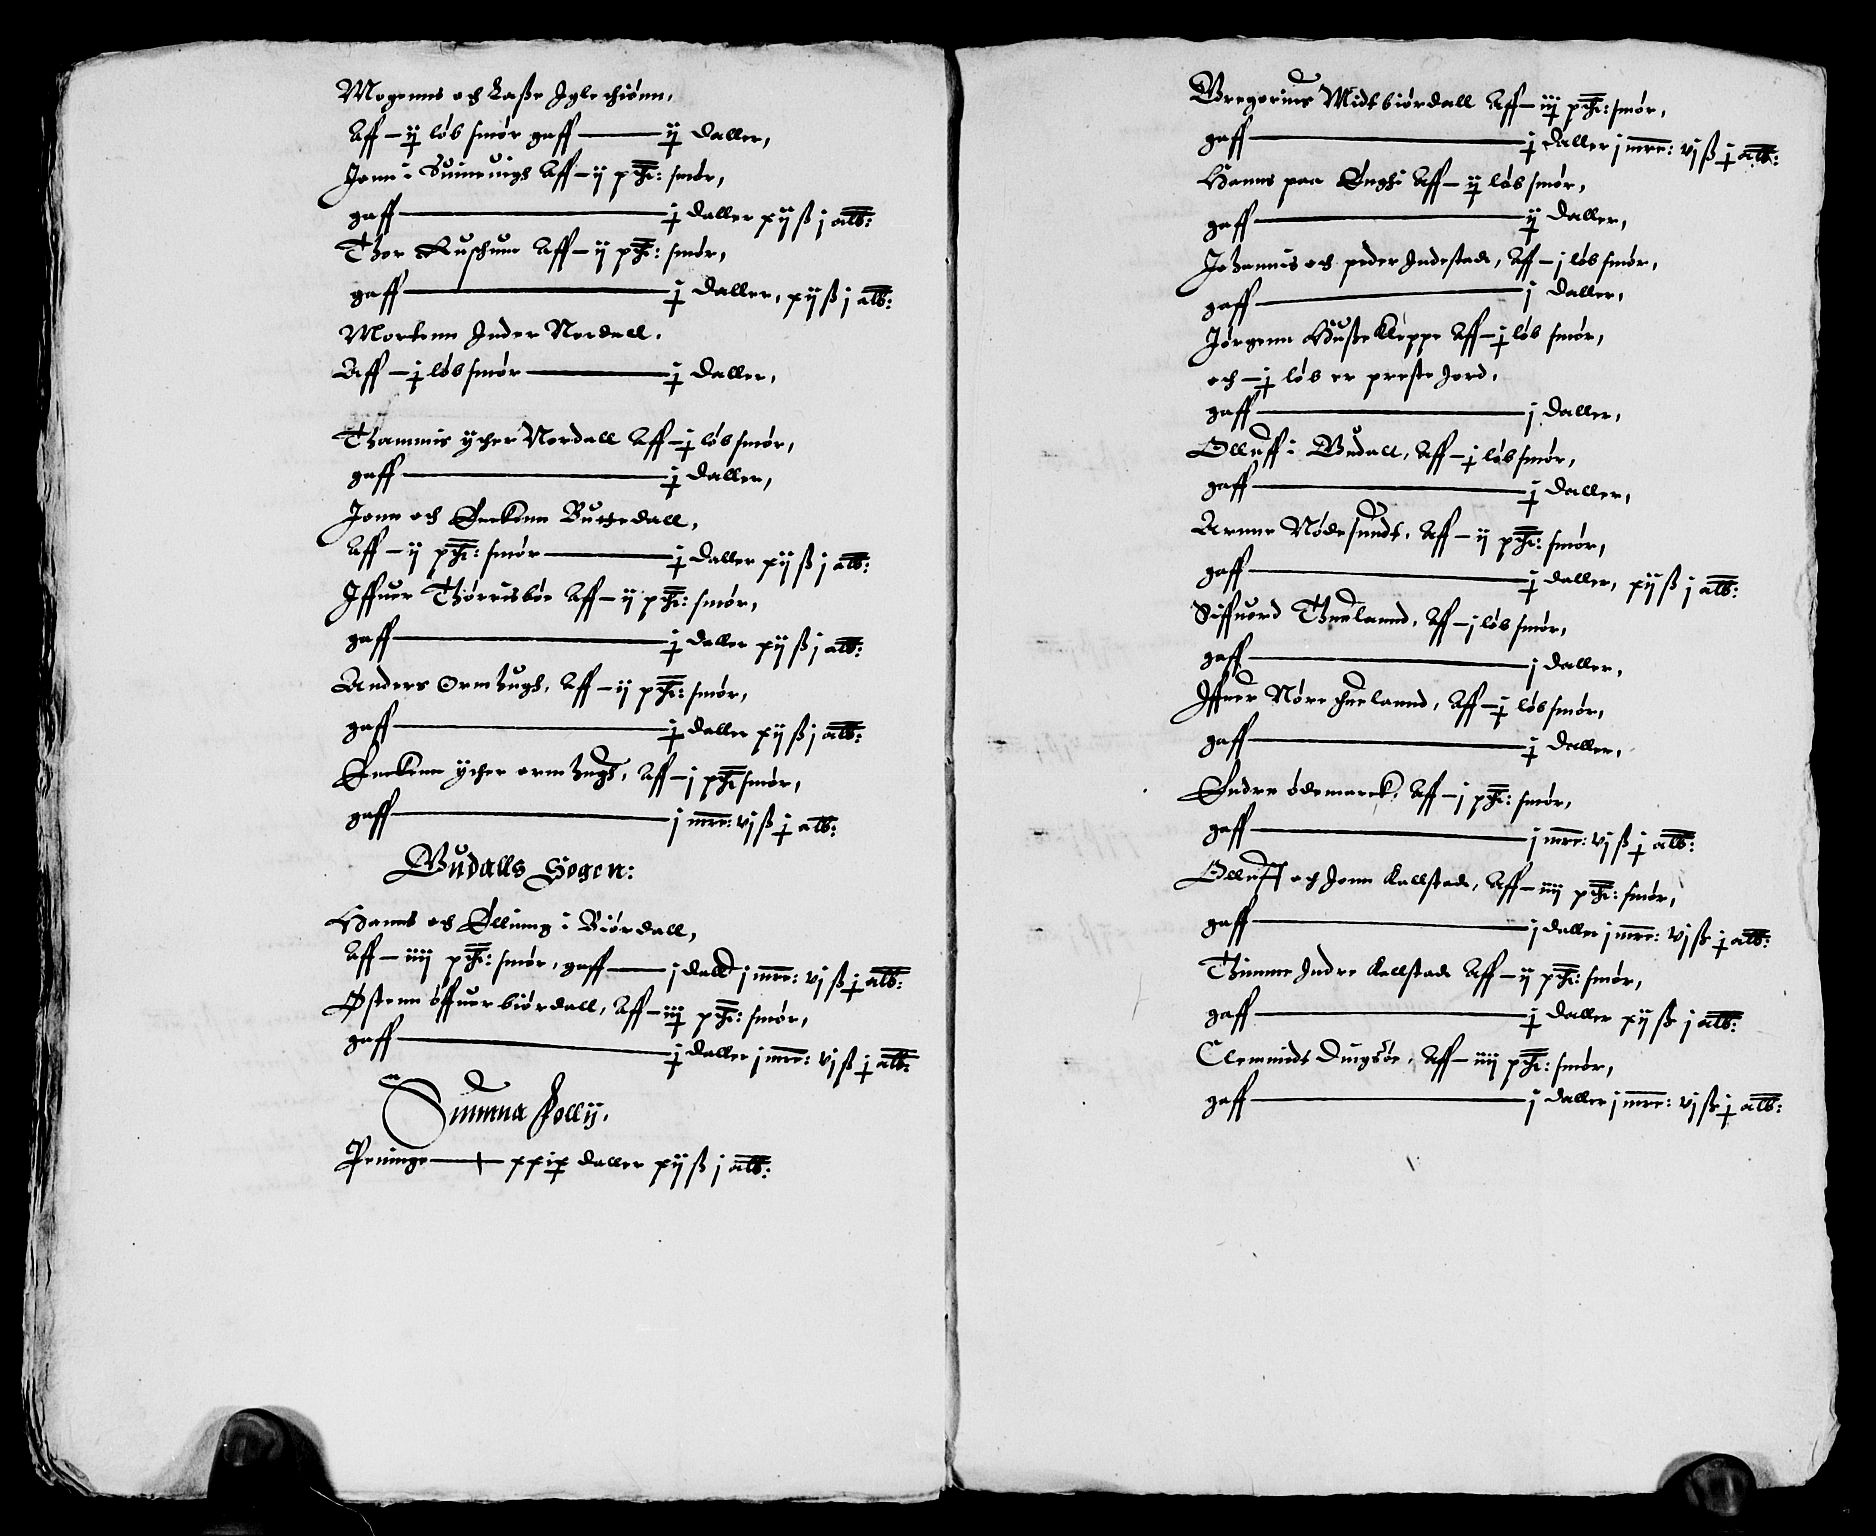 Mogenns och Laße Iglechiønn,
Aff — ij løb smør gaff — ij daller,
Jonn i Suineuigh Aff — ij pd: smør,
gaff — j daller xij ß j alb:
Thor Ruschune Aff — ij pd: smør,
gaff — j daller, xij ß j alb:
Mortenn Inder Nordall.
Aff — j løb smør — j daller,
Thammis ycher Nordall Aff — j løb smør,
gaff — j daller,
Jonn och Enckenn Buttedall,
Aff — ij pd: smør — j daller xij ß j alb:
Iffuer Thørrisbøe Aff — ij pd: smør,
gaff — j daller xij ß j alb:
Anders Ormhugh, Aff — ij pd: smør,
gaff — j daller xij ß j alb:
Enckenn ycher ormhugh, Aff — j pd smør,
gaff — j mrc: vj ß j alb:
Gudalls Sogen:
Hanns och Elling i Biordall,
Aff — iiij pd: smør, gaff — j dall j mrc: vj ß j alb:
Østenn øffuer biordall, Aff — iij pd: smør,
gaff — j daller j mrc: vj ß j alb:
Summa folly,
Peninge — xxix daller xij ß j alb:
Gregorius Midtbiordall Aff — iij pd: smør,
gaff — j daller j mrc: vj ß j alb:
Hanns paa Enghi Aff — ij løb smør,
gaff — ij daller,
Johannis och peder Indestade, Aff — j løb smør,
gaff — j daller,
Jørgenn Hußekleppe Aff — j løb smør,
och — j løb er preste Jord,
gaff — j daller,
Olluff i Gudall, Aff — j løb smør,
gaff — j daller,
Arnne Nødesundt, Aff — ij pd: smør,
gaff — j daller, xij ß j alb:
Siffuord Thuelannd, Aff — j løb smør,
gaff — j daller,
Iffuer Nørethuelannd, Aff — j løb smør,
gaff — j daller,
Endre ødemarck, Aff — j pd: smør,
gaff — j mrc: vj ß j alb:
Olluff och Jonn Kallstade, Aff — iiij pd: smør,
gaff — j daller j mrc: vj ß j alb:
Thimme Indre Kallstade Aff — ij pd: smør,
gaff — j daller xij ß j alb:
Clemmidt Dingsøe, Aff — iiij pd: smør,
gaff — j daller j mrc: vj ß j alb: